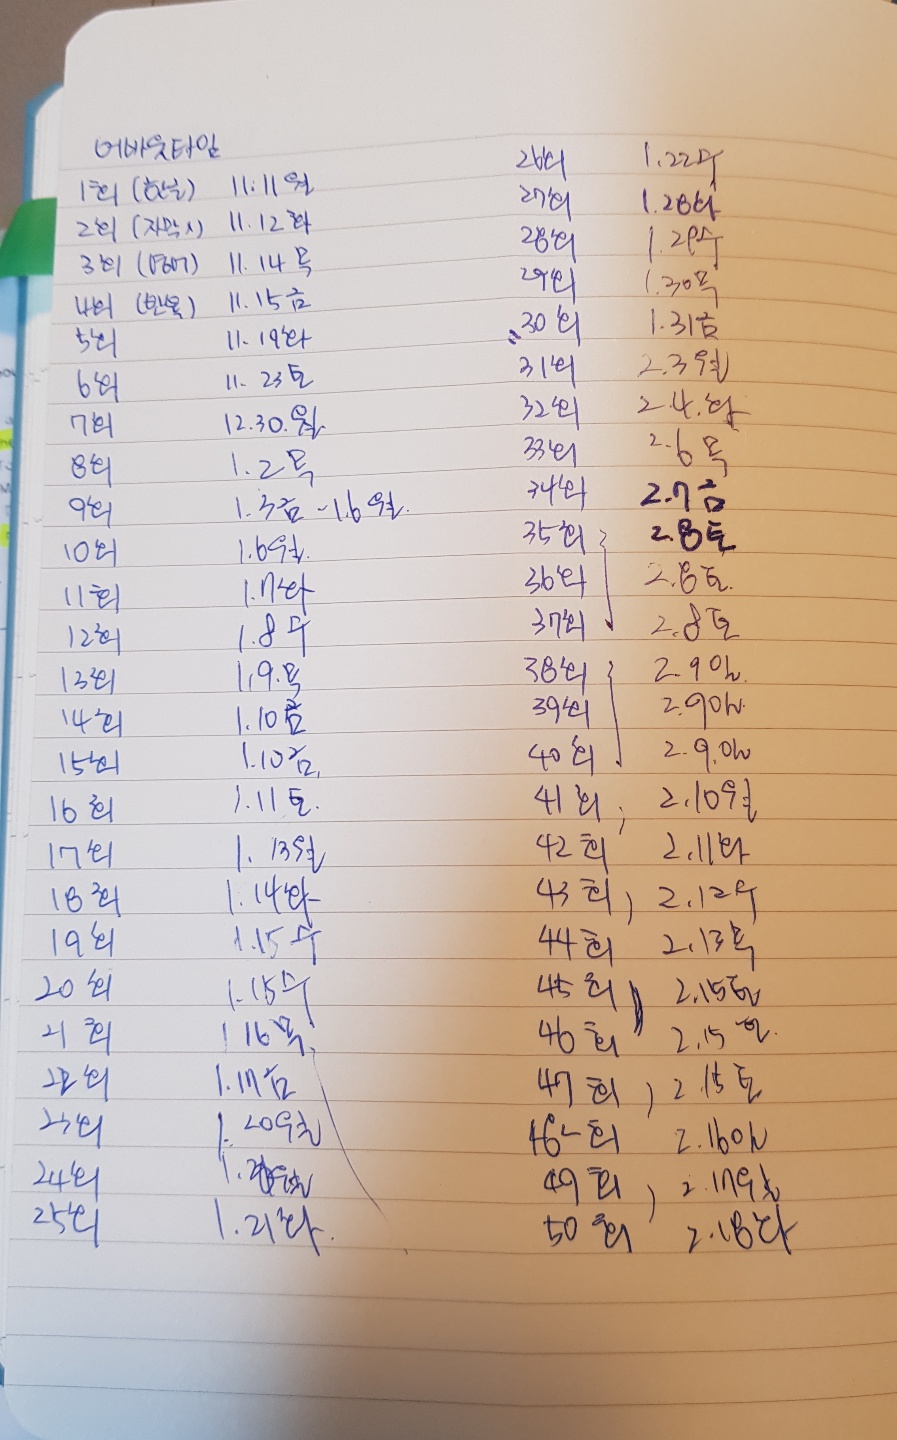 어바웃타임
1회 (한글) 11.11월
2회 (자막 X) 11.12화
3회 (영어) 11.14 목
4회 (한글) 11.15금
5회 11.19화
6회 11.23토
7회 12.30.월
8회 1.2 목
9회 1.3금 -1.6월.
10회 1.6월.
11회 1.7화
12회 1.8 수
13회 1.9.목
14회 1.10금
15회 1.10금.
16회 1.11토.
17회 1.13월
18회 1.14화
19회 1.15수
20회 1.15수
21회 1.16목.
22회 1.17금
23회 1.20월
24회
25회 1.21화.
26회 1.22수
27회 1.28화
28회 1.29수
29회 1.30목
30회 1.31금
31회 2.3월
32회 2.4.화
33회 2.6 목
34회 2.7금
35회 2.8토
36회 2.8토.
37회 2.8토
38회 2.9일.
39회 2.9일.
40회 2.9.일
41회 2.10월
42회 2.11화
43회 2.12수
44회 2.13목
45회 2.15토
46회 2.15토.
47회 2.15토
48회 2.16일
49회 2.17월
50회 2.18화